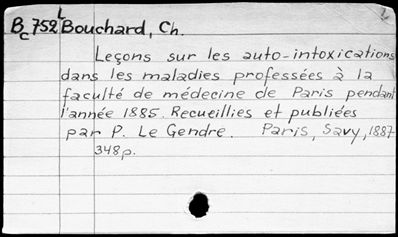 Bc 752 L Bouchard, Ch.
Leçons sur les auto-intoxications
dans les maladies professées à la
faculté de médecine de Paris pendant
l'année 1885. Recueillies et publiées
par P. Le Gendre. Paris, Savy, 1887
348 p.